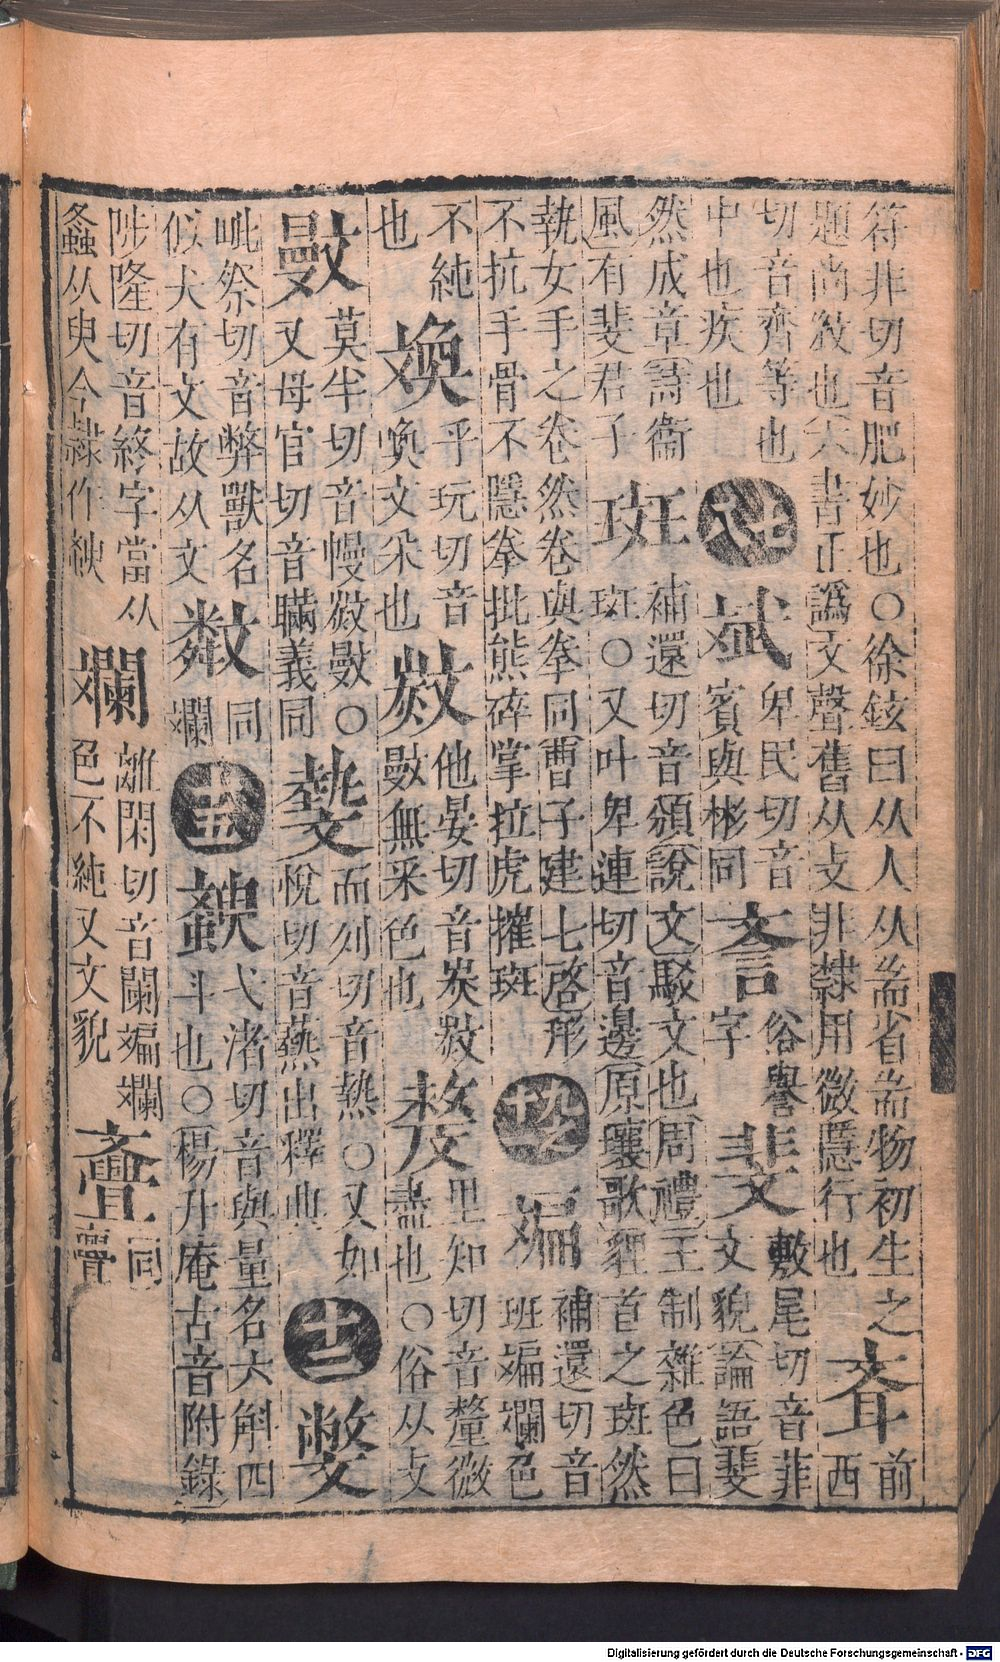 符非切音肥妙也○徐鉉曰从人从耑省耑物初生之
題尚敚也六書正譌文聲舊从攴非隸用微隱行也
前
西
切音齊等也
中也疾也
七八
斌
卑民切音
賓與彬同
俗譽
字
斐
敷尾切音菲
文貌論語斐
然成章詩衞
風有斐君子
斑
補還切音頒說文駁文也周禮王制雜色曰
斑○又叶卑連切音邊原壤歌貍首之斑然
執女手之卷然卷與拳同曹子建七啓形
不抗手骨不隱拳批熊碎掌拉虎摧斑
九十
斒
補還切音
班斒斕色
不純
也
呼玩切音
喚文采也
他晏切音炭
無采色也
里知切音釐微
畫也○俗从攴
莫半切音幔
○
又母官切音瞞義同
而列切音熱○又如
悅切音爇出釋典
十二
毗祭切音弊獸名
似犬有文故从文
同
斕
十五
弋渚切音與量名六斛四
斗也○楊升庵古音附錄
陟隆切音終字當从
蟲从臾今隷作
斕
離閑切音闌斒斕
色不純又文貌
斖
同
亹